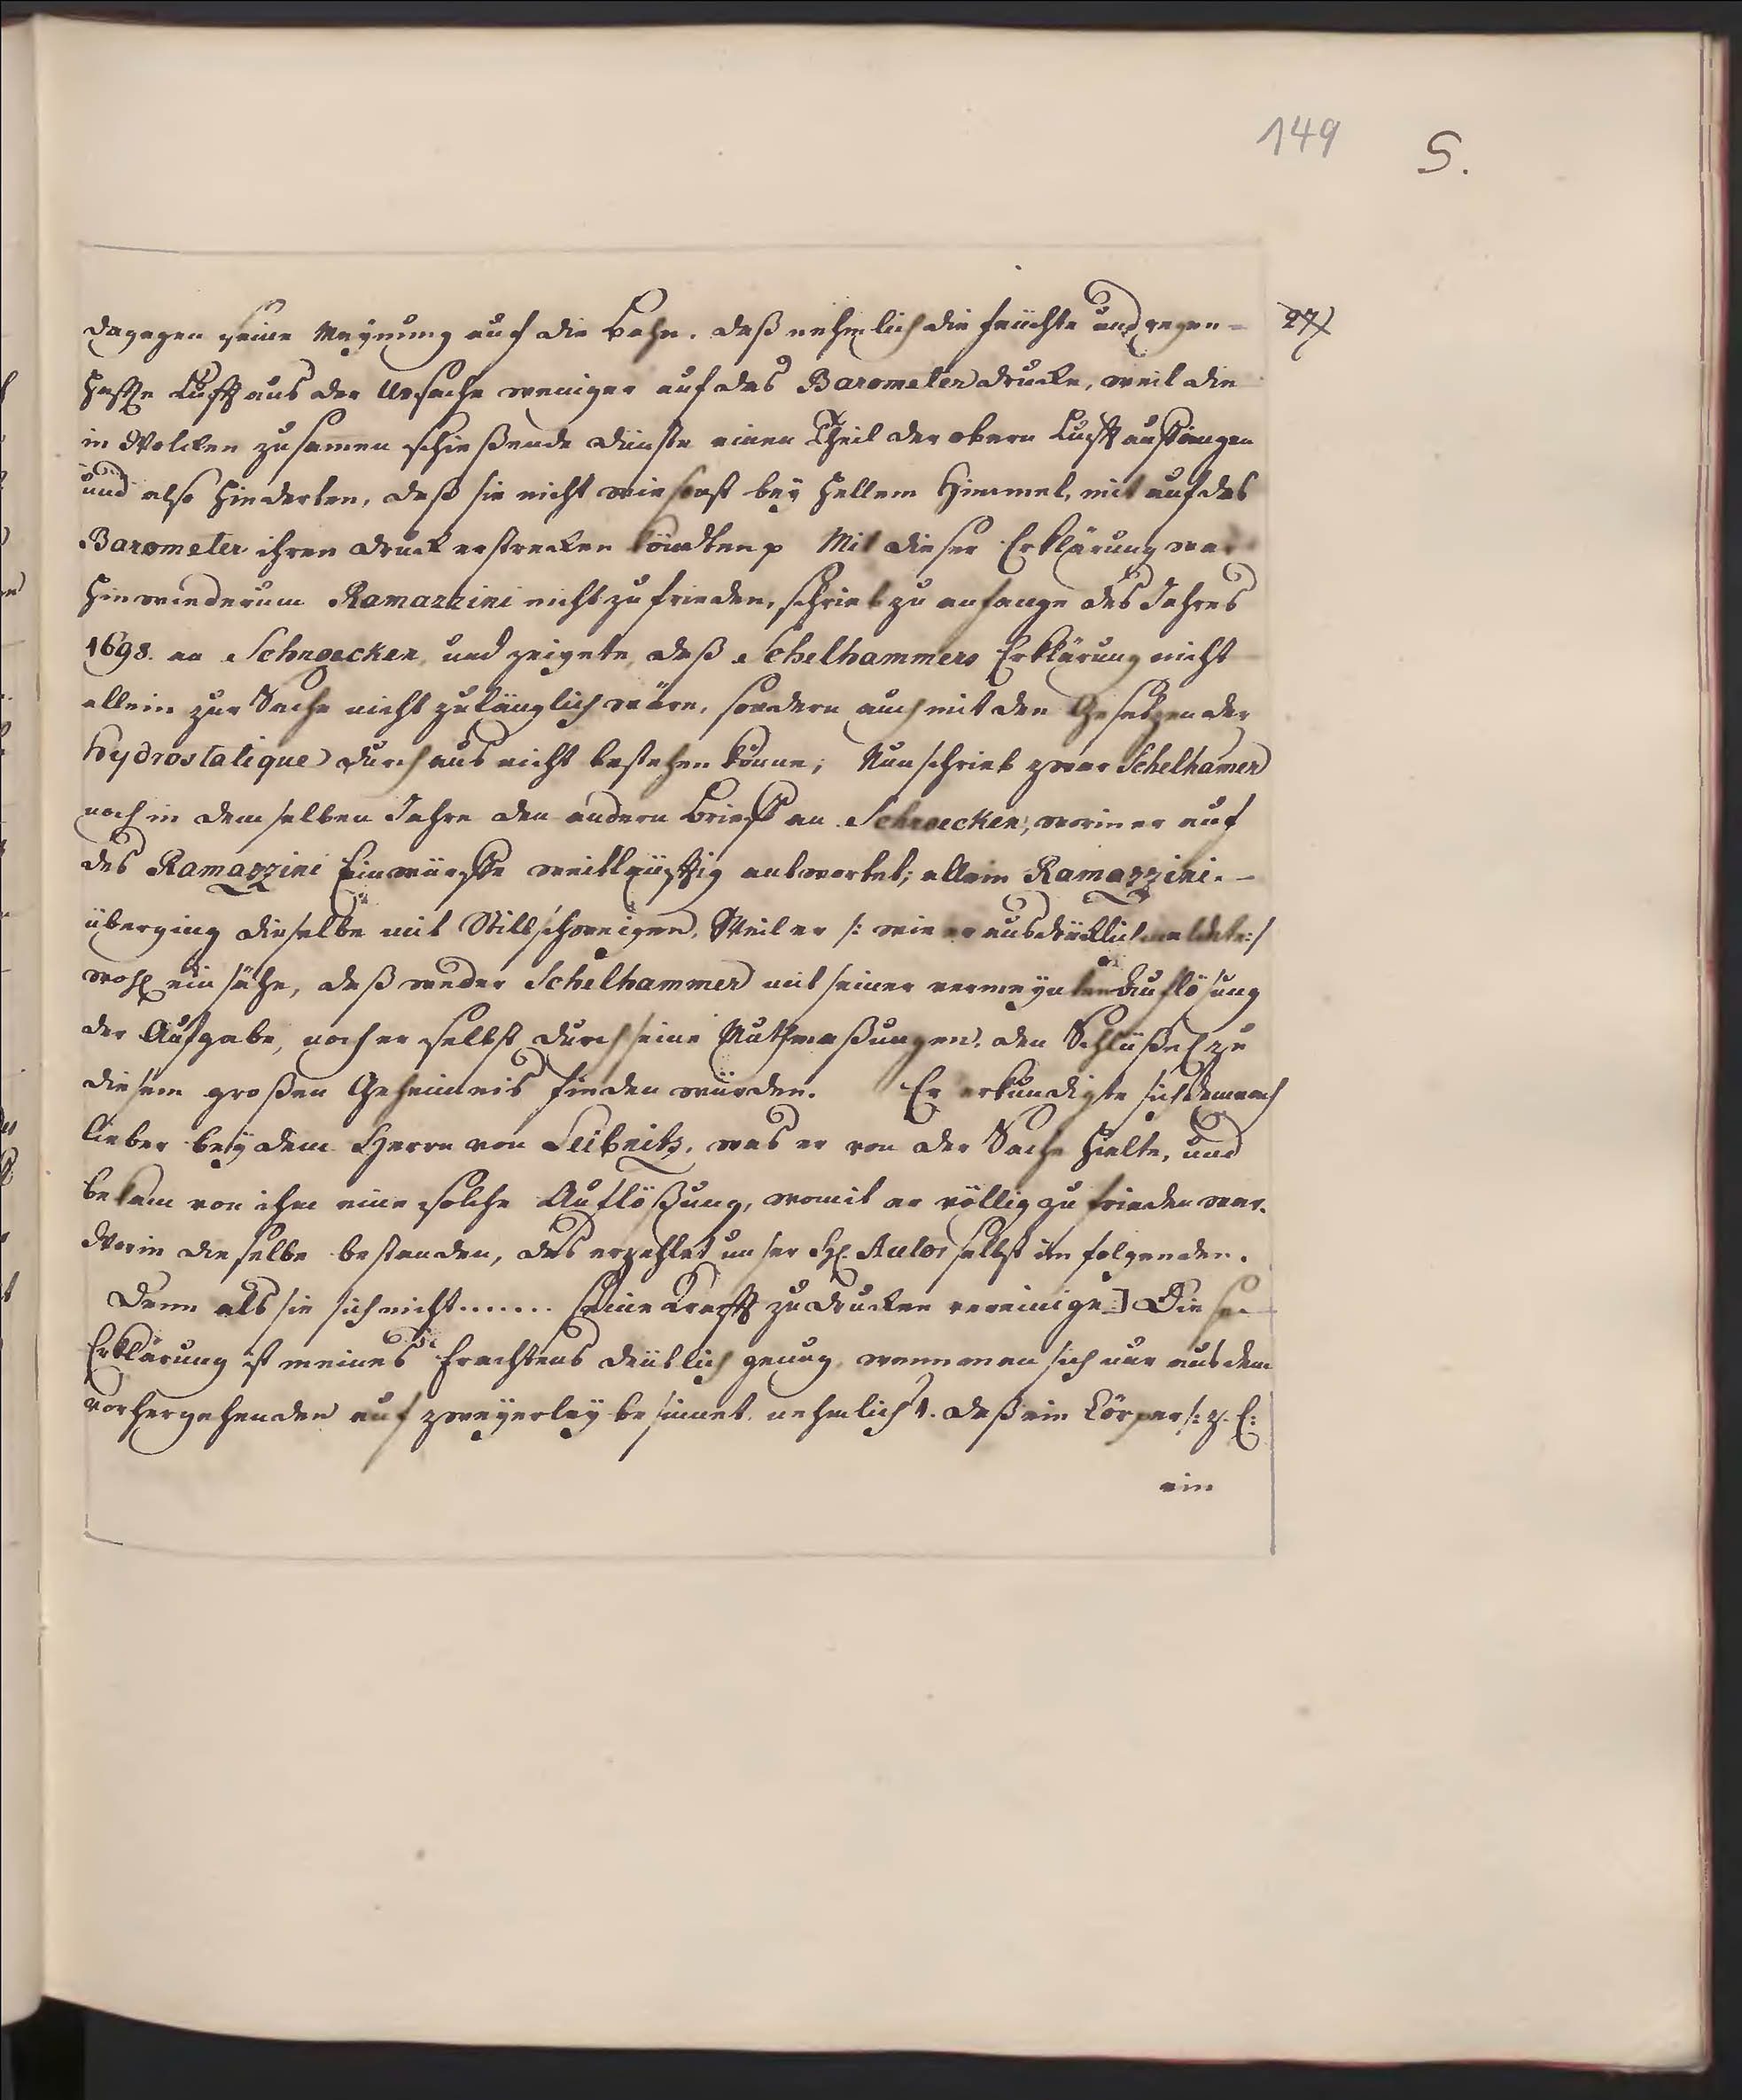 149 S.
dagegen seine Meynung auf die Bahn. daß nehmlich die feuchte und regen=
haffte Lufft aus der Ursache weniger auf das Barometer drucke, weil die
in Wolcken zusamen schießende Dünste einen Theil der obern Lufft auffangen
und also hinderten, daß sie nicht wie sonst bey hellem Himmel, mit auf das
Barometer ihren Druck erstrecken köndten p Mit dieser Erklärung war
hinwiederum Ramazzini nicht zufrieden, schrieb zu anfange des Jahres
1698. an Schroecken, und zeigete, daß Schelhammers Erklärung nicht
allein zur Sache nicht zulänglich wäre, sondern auch mit den Gesetzen der
Hydrostatique durchaus nicht bestehen könne; Nun schrieb zwar Schelhamer
noch in demselben Jahre den andern Brieff an Schroecken, worin er auf
des Ramazzini Einwürffe weitläufftig antwortet; allein Ramazzini.
überging dieselbe mit Stillschweigen, Weil er /: wie er ausdrücklich meldete :/
wohl einsähe, daß weder Schelhammer mit seiner vermeynten Auflösung
der Aufgabe, noch er selbst durch seine Muthmaßungen, den Schlüßel zu
diesem großen Geheimnis finden würden. Er erkundigte sich demnach
lieber bey dem Herrn von Leibnitz, was er von der Sache hielte, und
bekam von ihm eine solche Auflößung, womit er völlig zufrieden war.
Worin dieselbe bestanden, das erzehlet unser H. Autor selbst im folgenden.
Denn als sie sich nicht....... seine Krafft zu drucken vereinige] Diese
Erklärung ist meines Erachtens deutlich genug, wenn man sich nur aus dem
vorhergehenden auf zweyerley besinnet. nehmlich 1. daß ein Cörper /: z. E:
ein